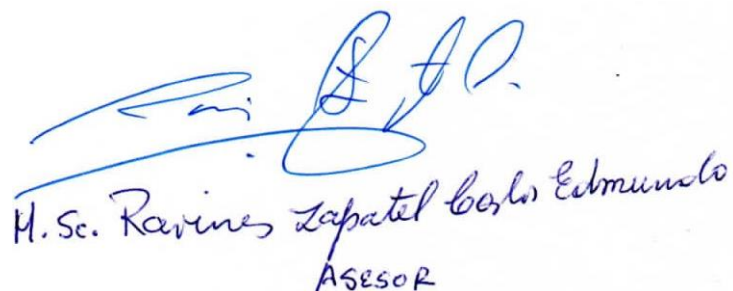 M. Sc. Ravines Zapatel Carlos Edmundo
ASESOR